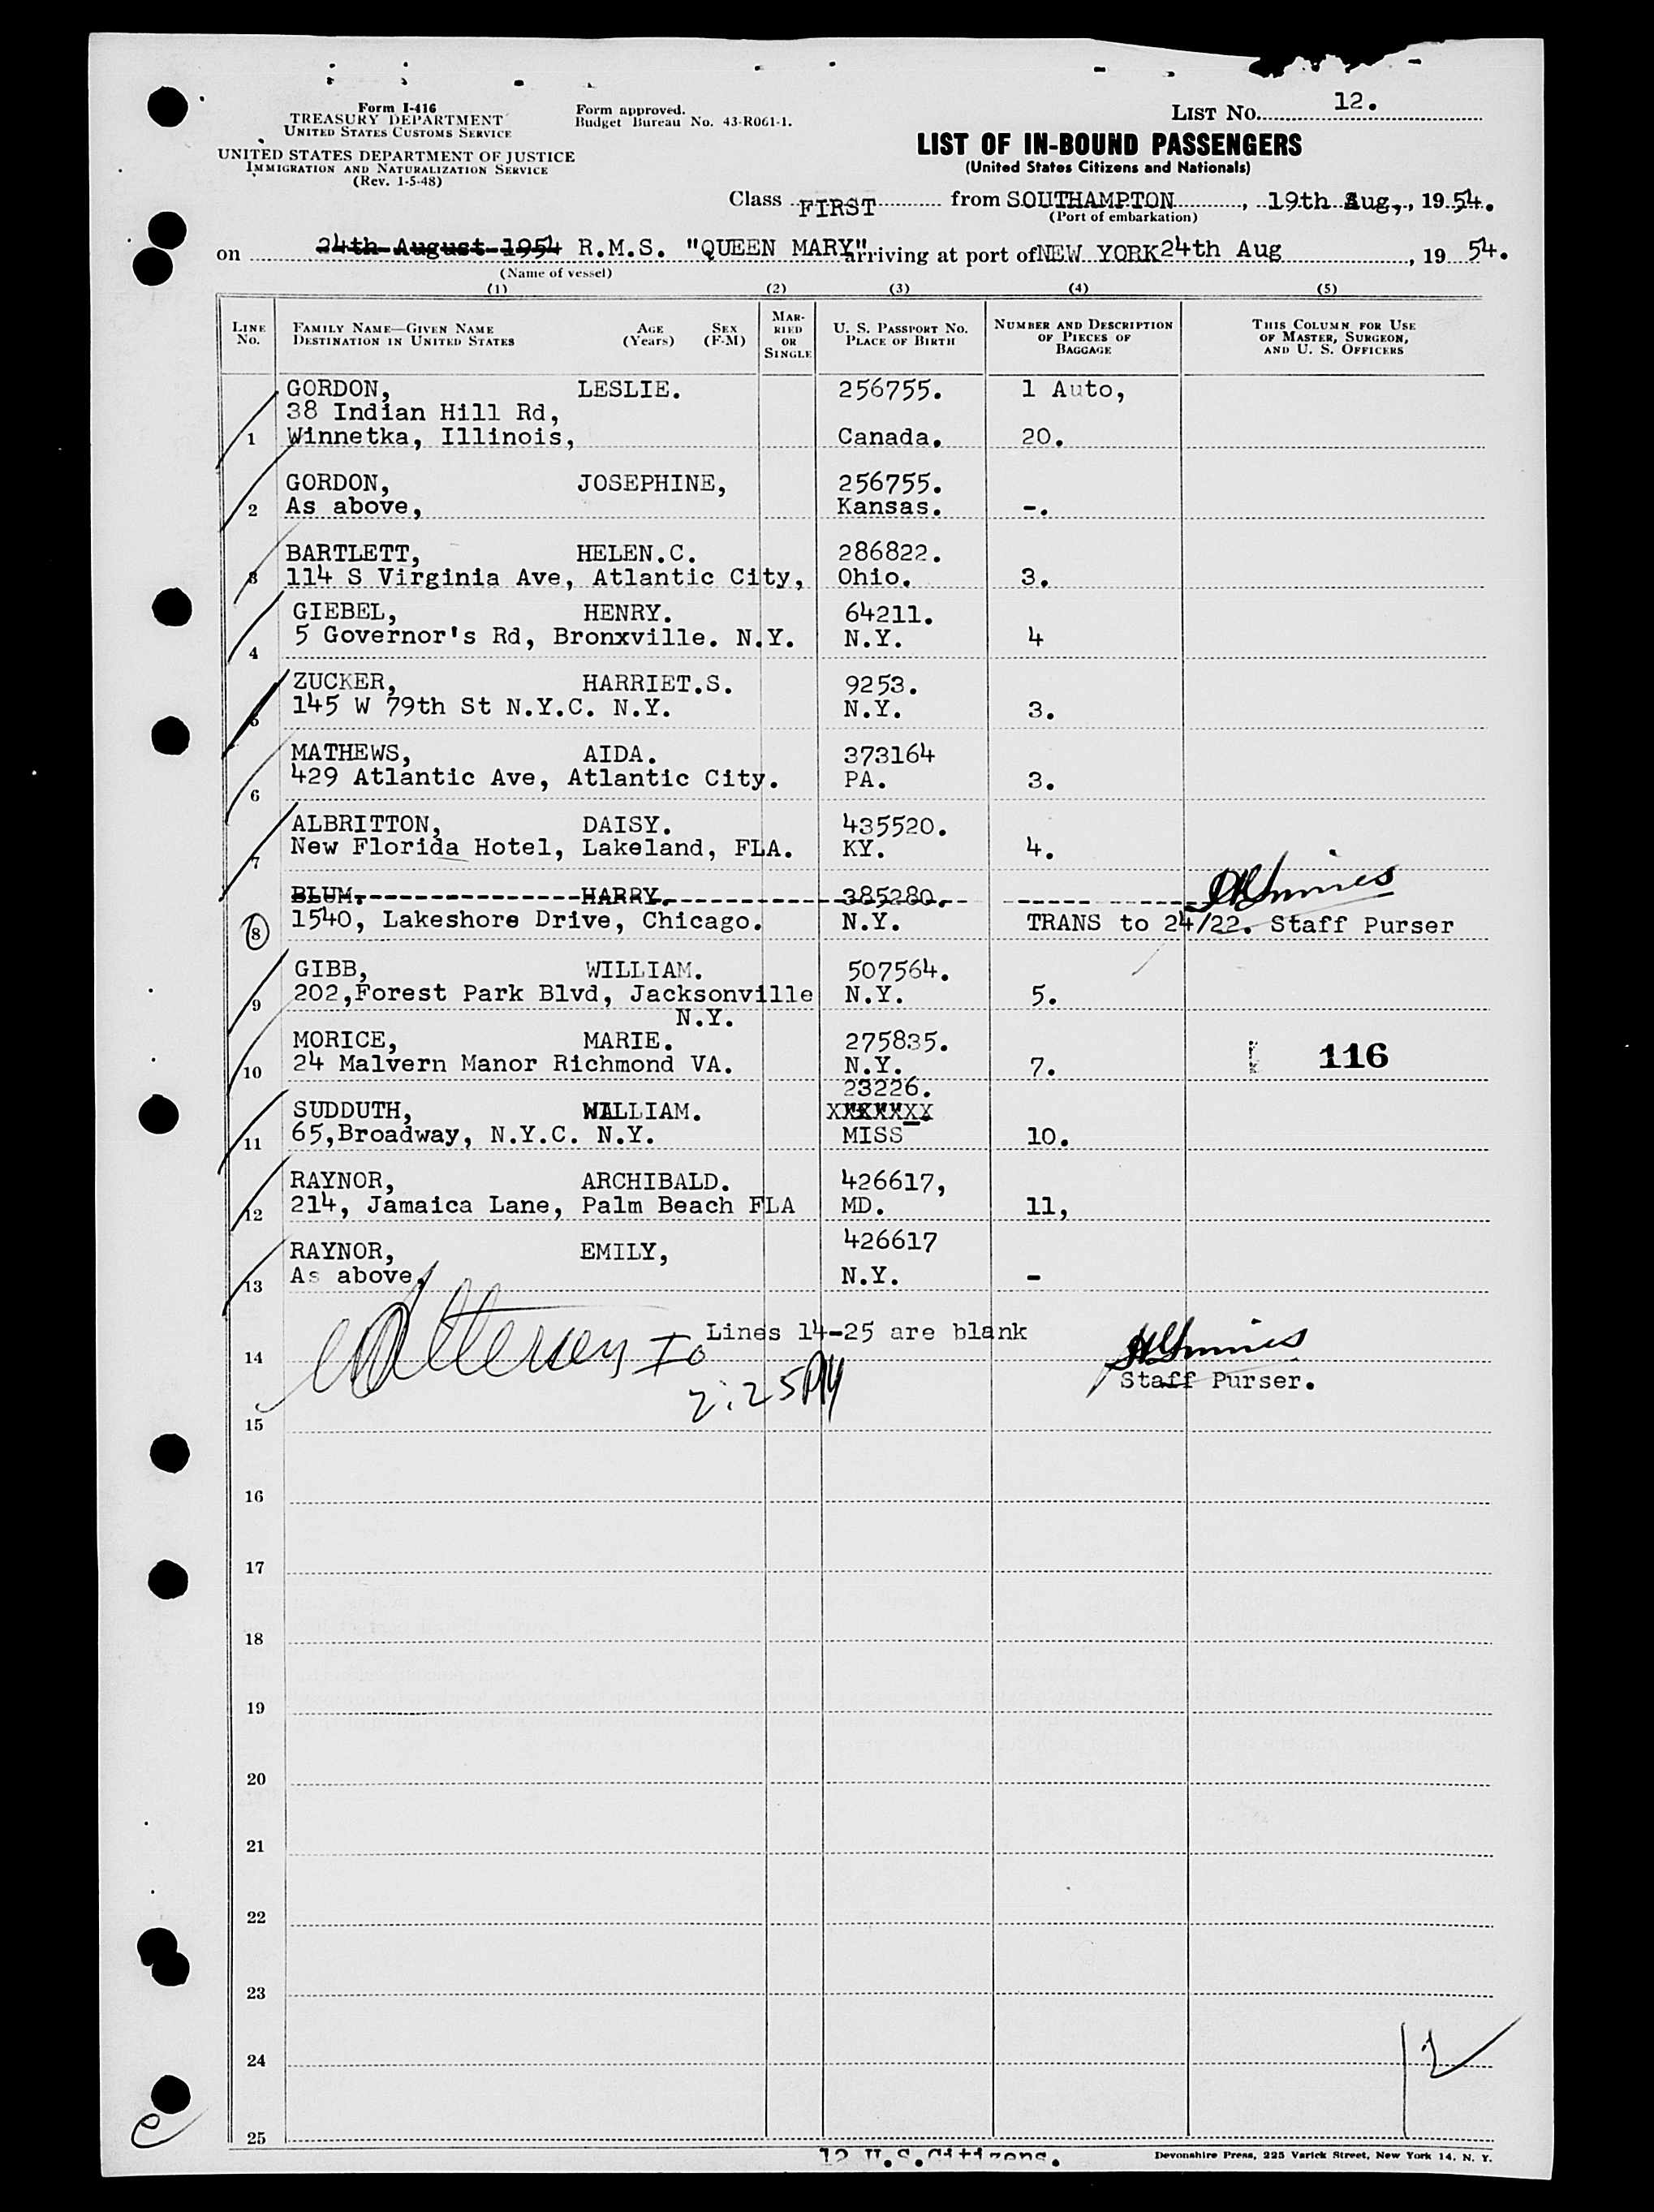 Form I-416
TREASURY DEPARTMENT
UNITED STATES CUSTOMS SERVICE
UNITED STATES DEPARTMENT OF JUSTICE
IMMIGRATION AND NATURALIZATION SERVICE
(Rev. 1-5-48)
Form approved.
Budget Bureau No. 43-R061-1.
LIST No. 12.
LIST OF IN-BOUND PASSENGERS
(United States Citizens and Nationals)
Class FIRST from SOUTHAMPTON, 19th Aug,, 1954.
(Port of embarkation)
on 24th August 1954 R.M.S. "QUEEN MARY" arriving at port of NEW YORK 24th Aug, 19 54.
(Name of vessel)
(1) (2) (3) (4) (5)
LINE No. FAMILY NAME—GIVEN NAME DESTINATION IN UNITED STATES AGE (Years) SEX (F-M) MARRIED OR SINGLE U. S. PASSPORT No. PLACE OF BIRTH NUMBER AND DESCRIPTION OF PIECES OF BAGGAGE THIS COLUMN FOR USE OF MASTER, SURGEON, AND U. S. OFFICERS
GORDON, LESLIE. 256755. 1 Auto,
38 Indian Hill Rd,
1 Winnetka, Illinois, Canada. 20.
GORDON, JOSEPHINE, 256755.
2 As above, Kansas. -.
BARTLETT, HELEN.C. 286822.
3 114 S Virginia Ave, Atlantic City, Ohio. 3.
GIEBEL, HENRY. 64211.
4 5 Governor's Rd, Bronxville. N.Y. N.Y. 4
ZUCKER, HARRIET.S. 9253.
5 145 W 79th St N.Y.C. N.Y. N.Y. 3.
MATHEWS, AIDA. 373164
6 429 Atlantic Ave, Atlantic City. PA. 3.
ALBRITTON, DAISY. 435520.
7 New Florida Hotel, Lakeland, FLA. KY. 4.
BLUM, HARRY. 385280.
8 1540, Lakeshore Drive, Chicago. N.Y. TRANS to 24/22. Staff Purser
GIBB, WILLIAM. 507564.
9 202,Forest Park Blvd, Jacksonville N.Y. 5.
N.Y.
MORICE, MARIE. 275835.
10 24 Malvern Manor Richmond VA. N.Y. 7. 116
23226.
SUDDUTH, WILLIAM. XXXXXXX
11 65,Broadway, N.Y.C. N.Y. MISS 10.
RAYNOR, ARCHIBALD. 426617,
12 214, Jamaica Lane, Palm Beach FLA MD. 11,
RAYNOR, EMILY, 426617
13 As above, N.Y. -
Lines 14-25 are blank
14
2:25PM
Staff Purser.
15
16
17
18
19
20
21
22
23
24
12
25
12 U.S.Citizens.
Devonshire Press, 225 Varick Street, New York 14, N. Y.